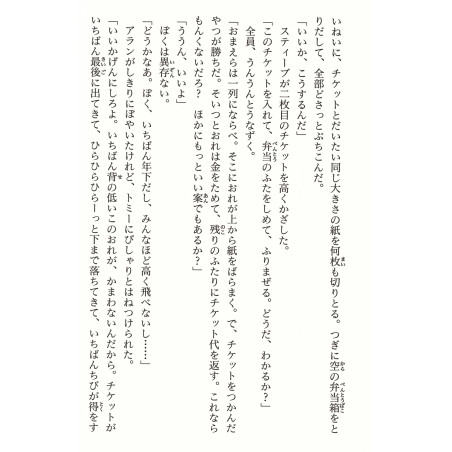 いねいに、チケットとだいたい同じ大きさの紙を何枚も切りとる。つぎに空の弁当箱をと
りだして、全部どさっとぶちこんだ。
「いいか、こうするんだ」
スティーブが二枚目のチケットを高くかざした。
「このチケットを入れて、弁当のふたをしめて、ふりまぜる。どうだ、わかるか?」
全員、うんうんとうなずく。
「おまえらは一列にならべ。そこにおれが上から紙をばらまく。で、チケットをつかんだ
やつが勝ちだ。そいつとおれは金をためて、残りのふたりにチケット代を返す。これなら
もんくないだろ? ほかにもっといい案でもあるか?」
「ううん、いいよ」
ぼくは異存ない。
「どうかなあ。ぼく、いちばん年下だし、みんなほど高く飛べないし……」
アランがしきりにぼやいたけれど、トミーにぴしゃりとはねつけられた。
「いいかげんにしろよ。いちばん背の低いこのおれが、かまわないんだから。チケットが
いちばん最後に出てきて、ひらひらひらーっと下まで落ちてきて、いちばんちびが得をす